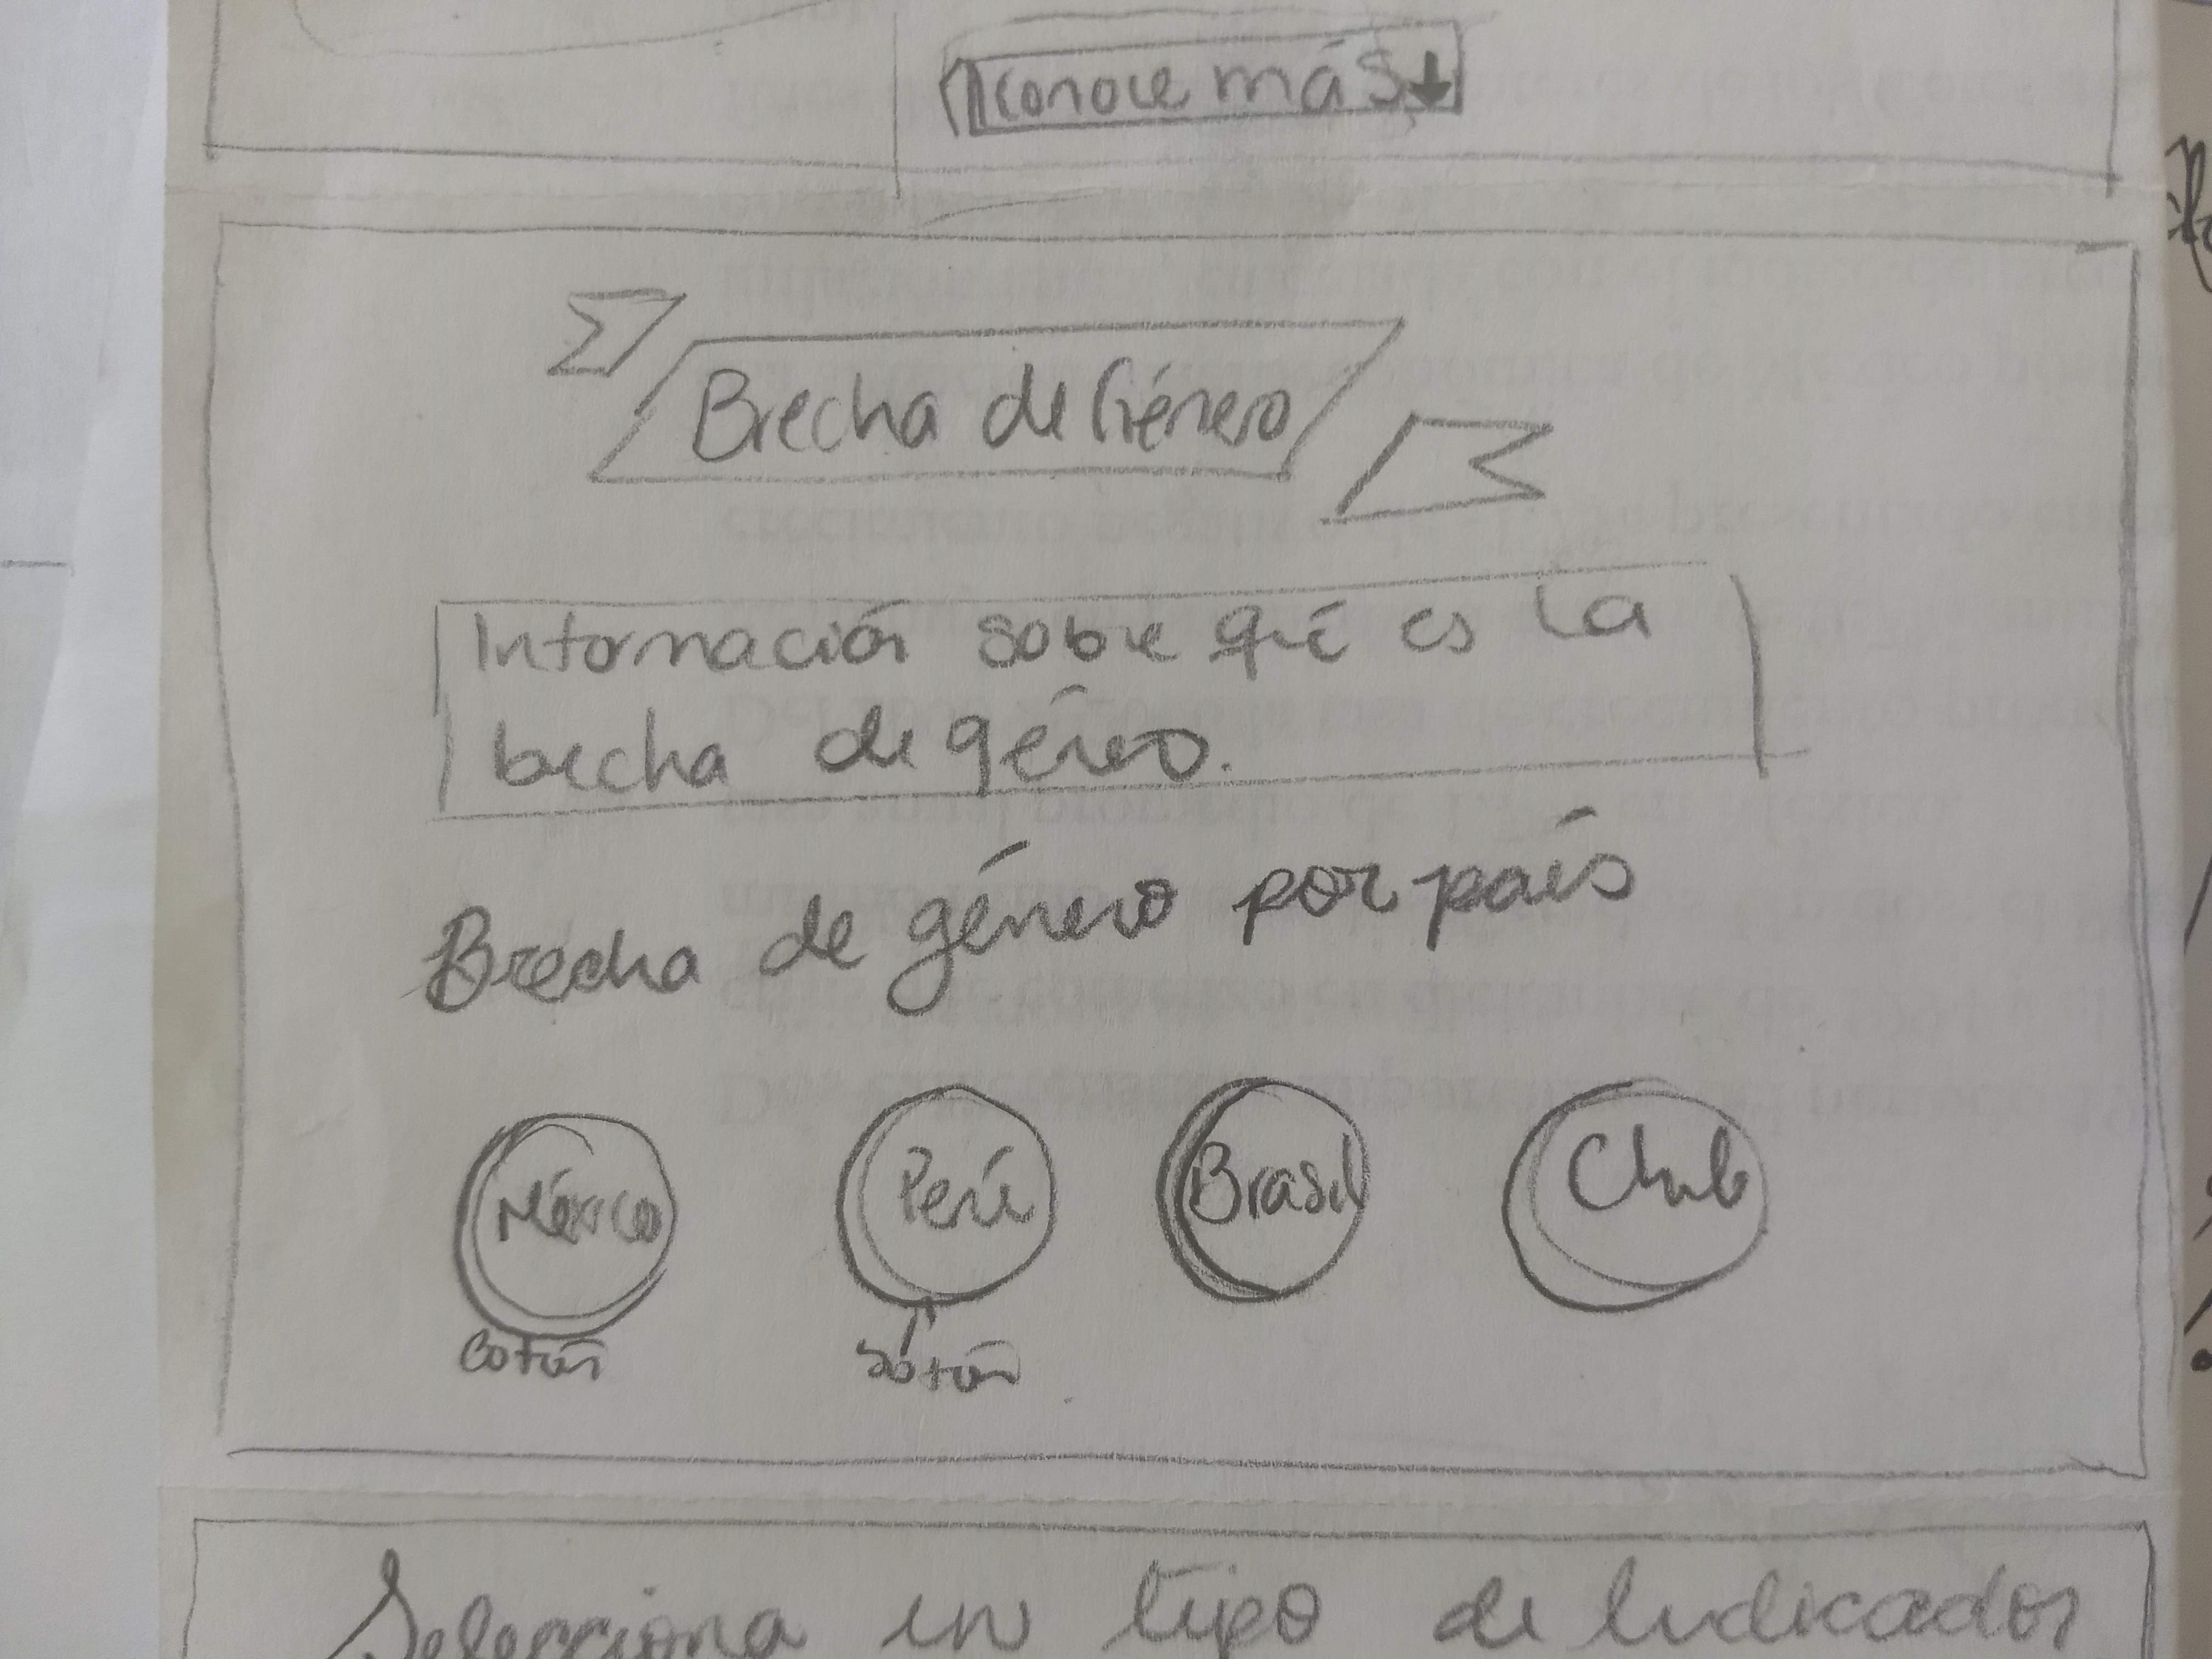 conoce más
Brecha de Género
Información sobre qué es la
brecha de género.
Brecha de género por país
México
Perú
Brasil
Chile
botón
botón
Selecciona un tipo de Indicador